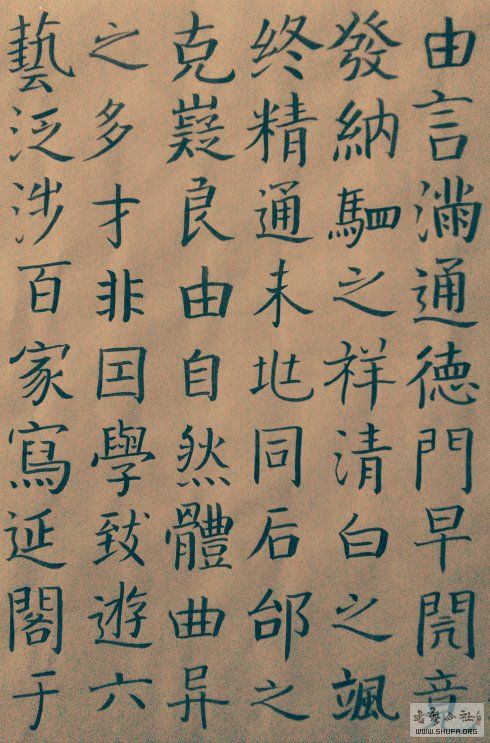 由言滿通德門早
發納駟之祥清白之颯
終精通未世同石邰之
克嶷良由自然體曲异
之多才非囙學致遊六
藝泛涉百家寫延閣于
WWW.SHUFA.ORG